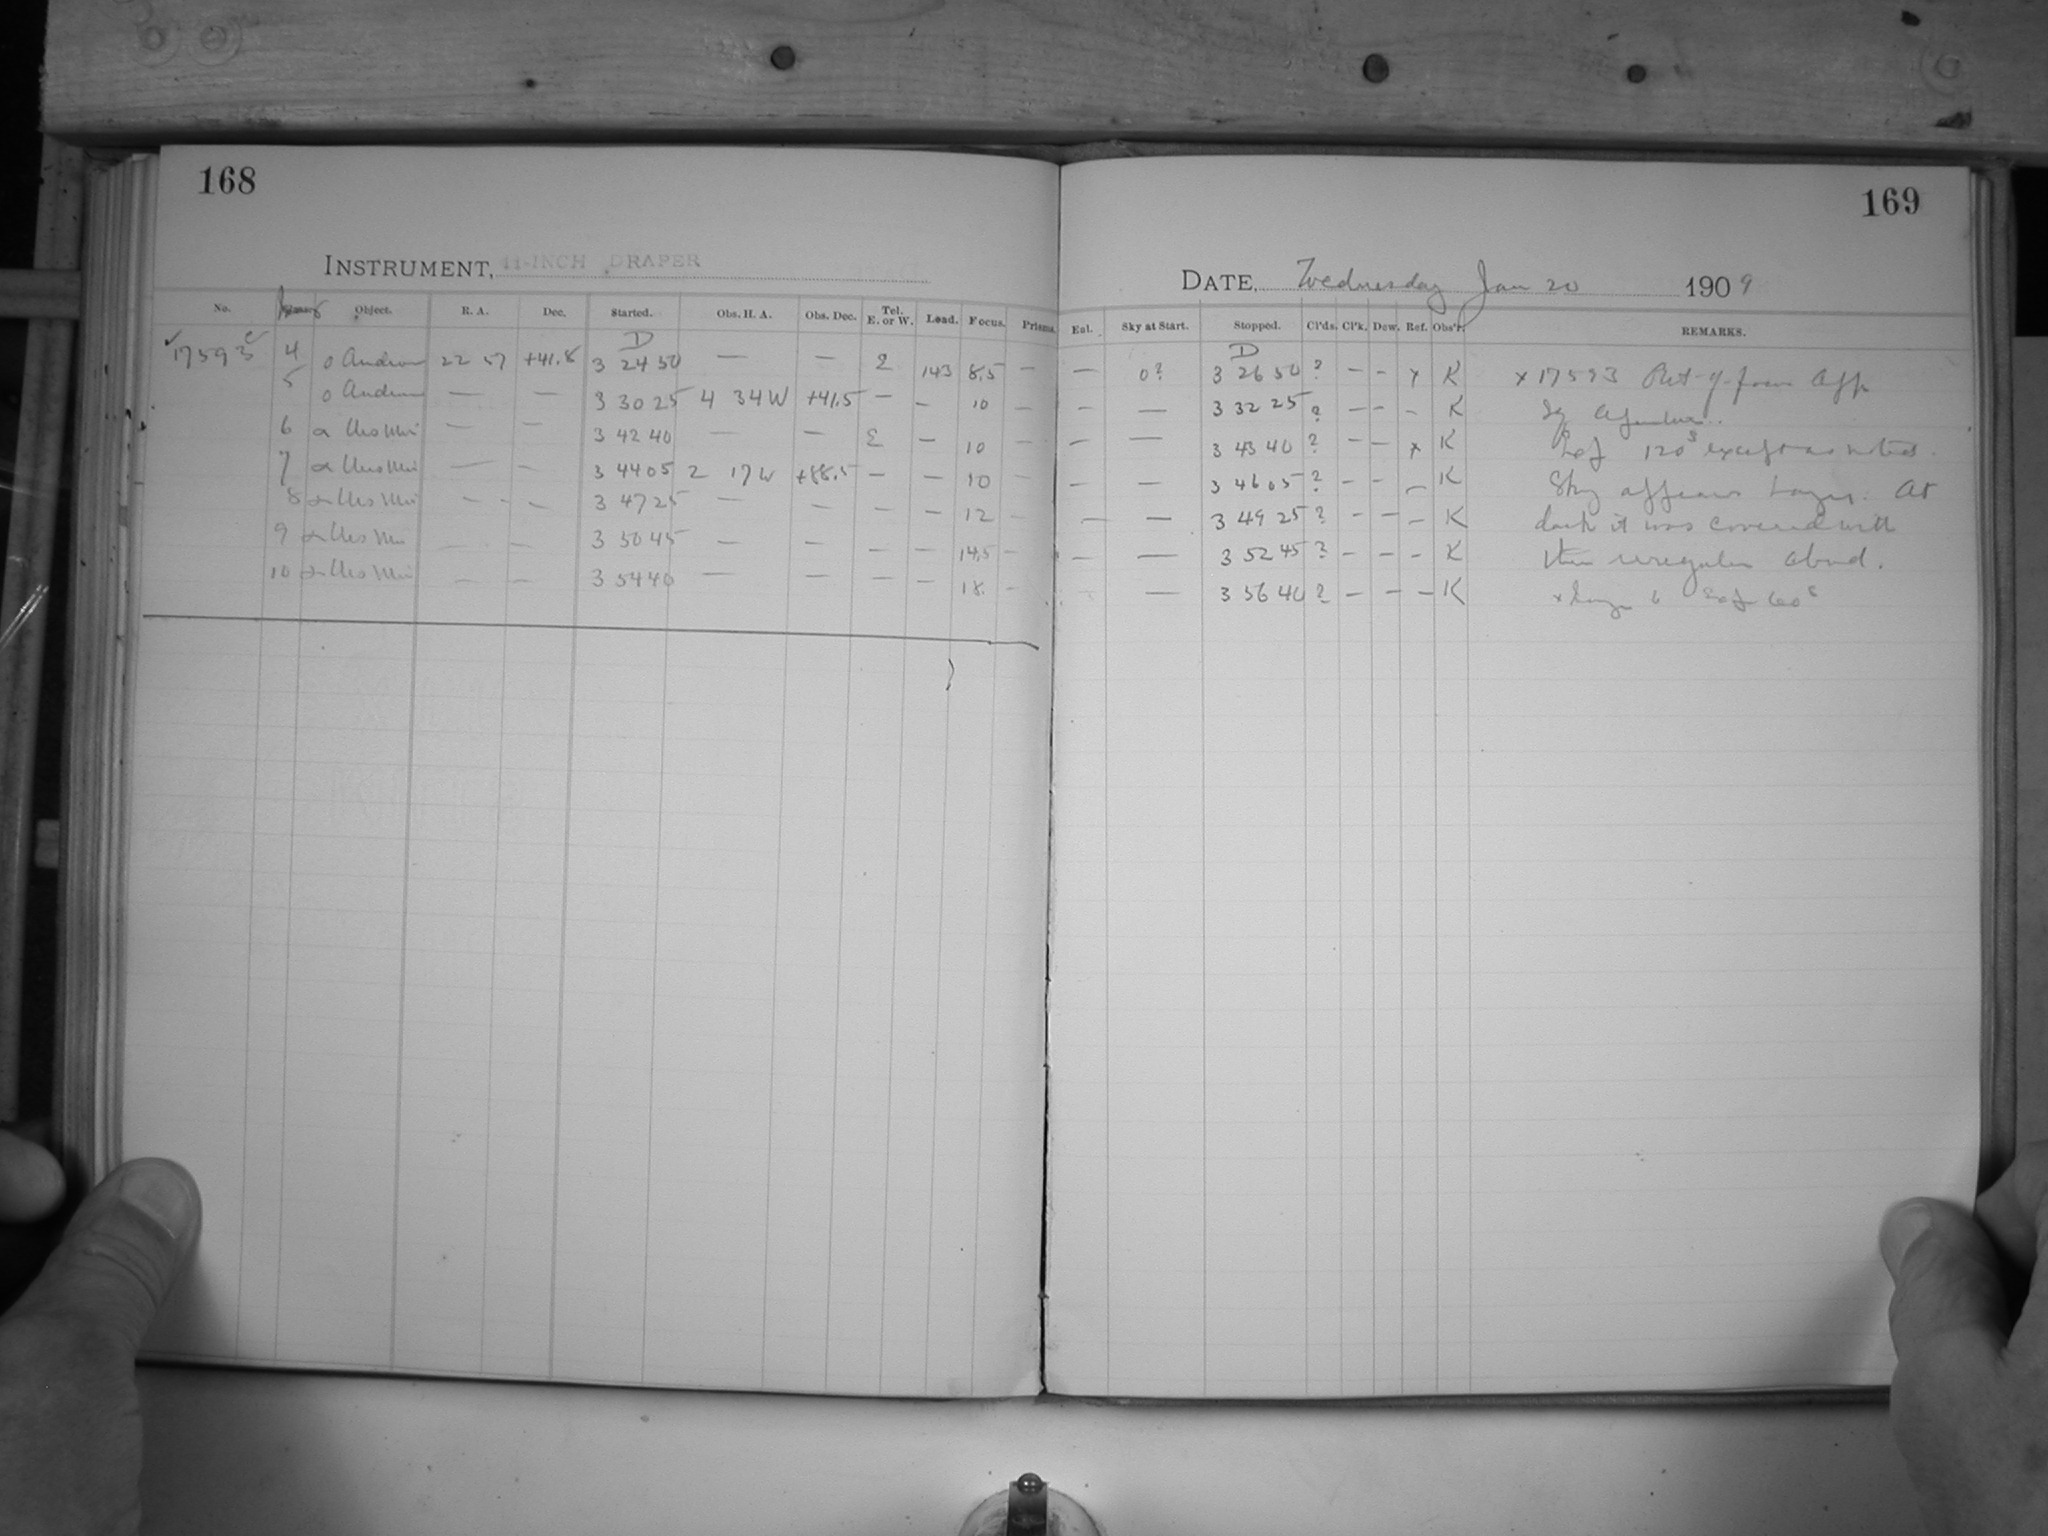 168
INSTRUMENT, 11-INCH DRAPER
No. Object. R. A. Dec. Started. Obs. H. A. Obs. Dec. Tel. E. or W. Load. Focus. Prisms.
D
17593 4 o Androm 22 57 +41.8 3 24 50 — — E 143 8.5 —
5 o Androm — — 3 30 25 4 34 W +41.5 — — 10 —
6 α Urs Min — — 3 42 40 — — E — 10 —
7 α Urs Min — — 3 44 05 2 17 W +88.5 — — 10 —
8 α Urs Min — — 3 47 25 — — — — 12 —
9 α Urs Min — — 3 50 45 — — — — 14.5 —
10 α Urs Min — — 3 54 40 — — — — 18 —
169
DATE, Wednesday Jan 20 1909
Enl. Sky at Start. Stopped. Cl'ds. Cl'k. Dew. Ref. Obs'r. REMARKS.
D
— 0? 3 26 50 ? — — x K x 17593 Plate of focus
— — 3 32 25 ? — — — K
— — 3 43 40 ? — — x K 120s except as noted.
— — 3 46 05 ? — — — K Sky appears hazy. At
— — 3 49 25 ? — — — K dark it was covered with
— — 3 52 45 ? — — — K thin irregular cloud.
— — 3 56 40 ? — — — K x Image 6 Exp 60s